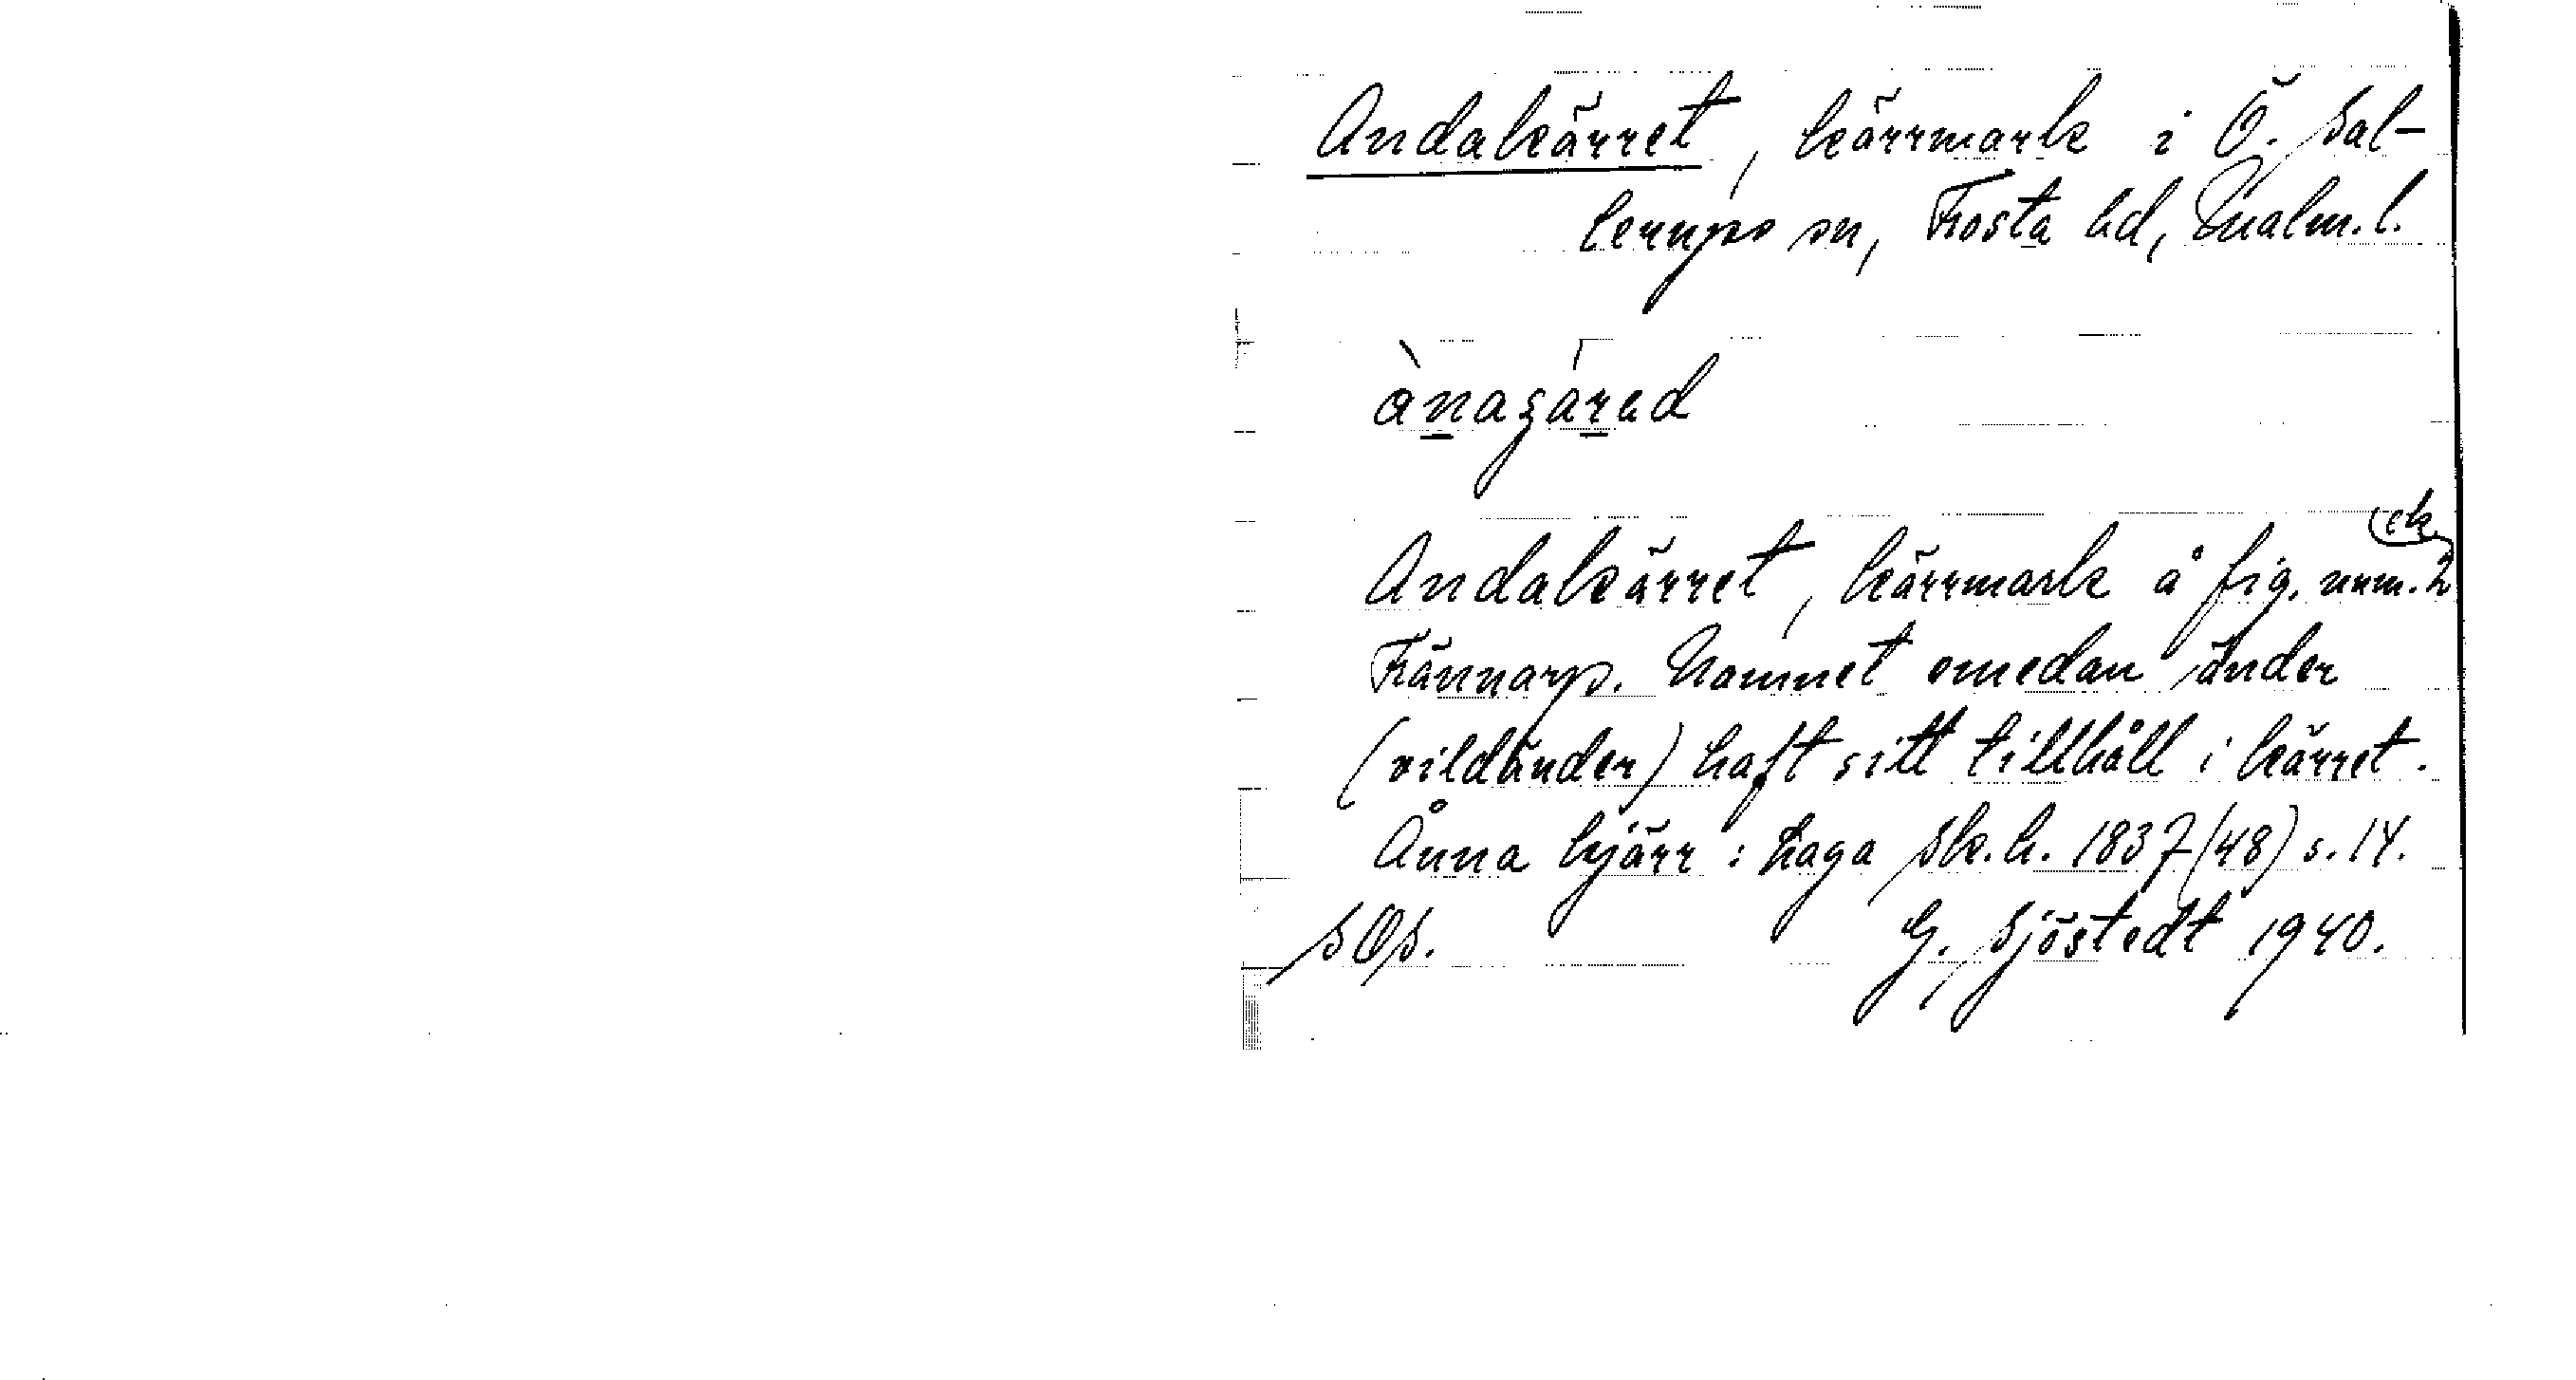 Andakärret, kärrmark i Ö. Sal-
lerups sn, Frosta hd, Malm. l.
ek
Andakärret, kärrmark å fig. num. 2
Frännarp. Namnet emedan änder
(vildänder) haft sitt tillhåll i kärret.
Ånna kjärr: haga Sk. h. 1837 (48) s. 14.
SOS. G. Sjöstedt 1940.